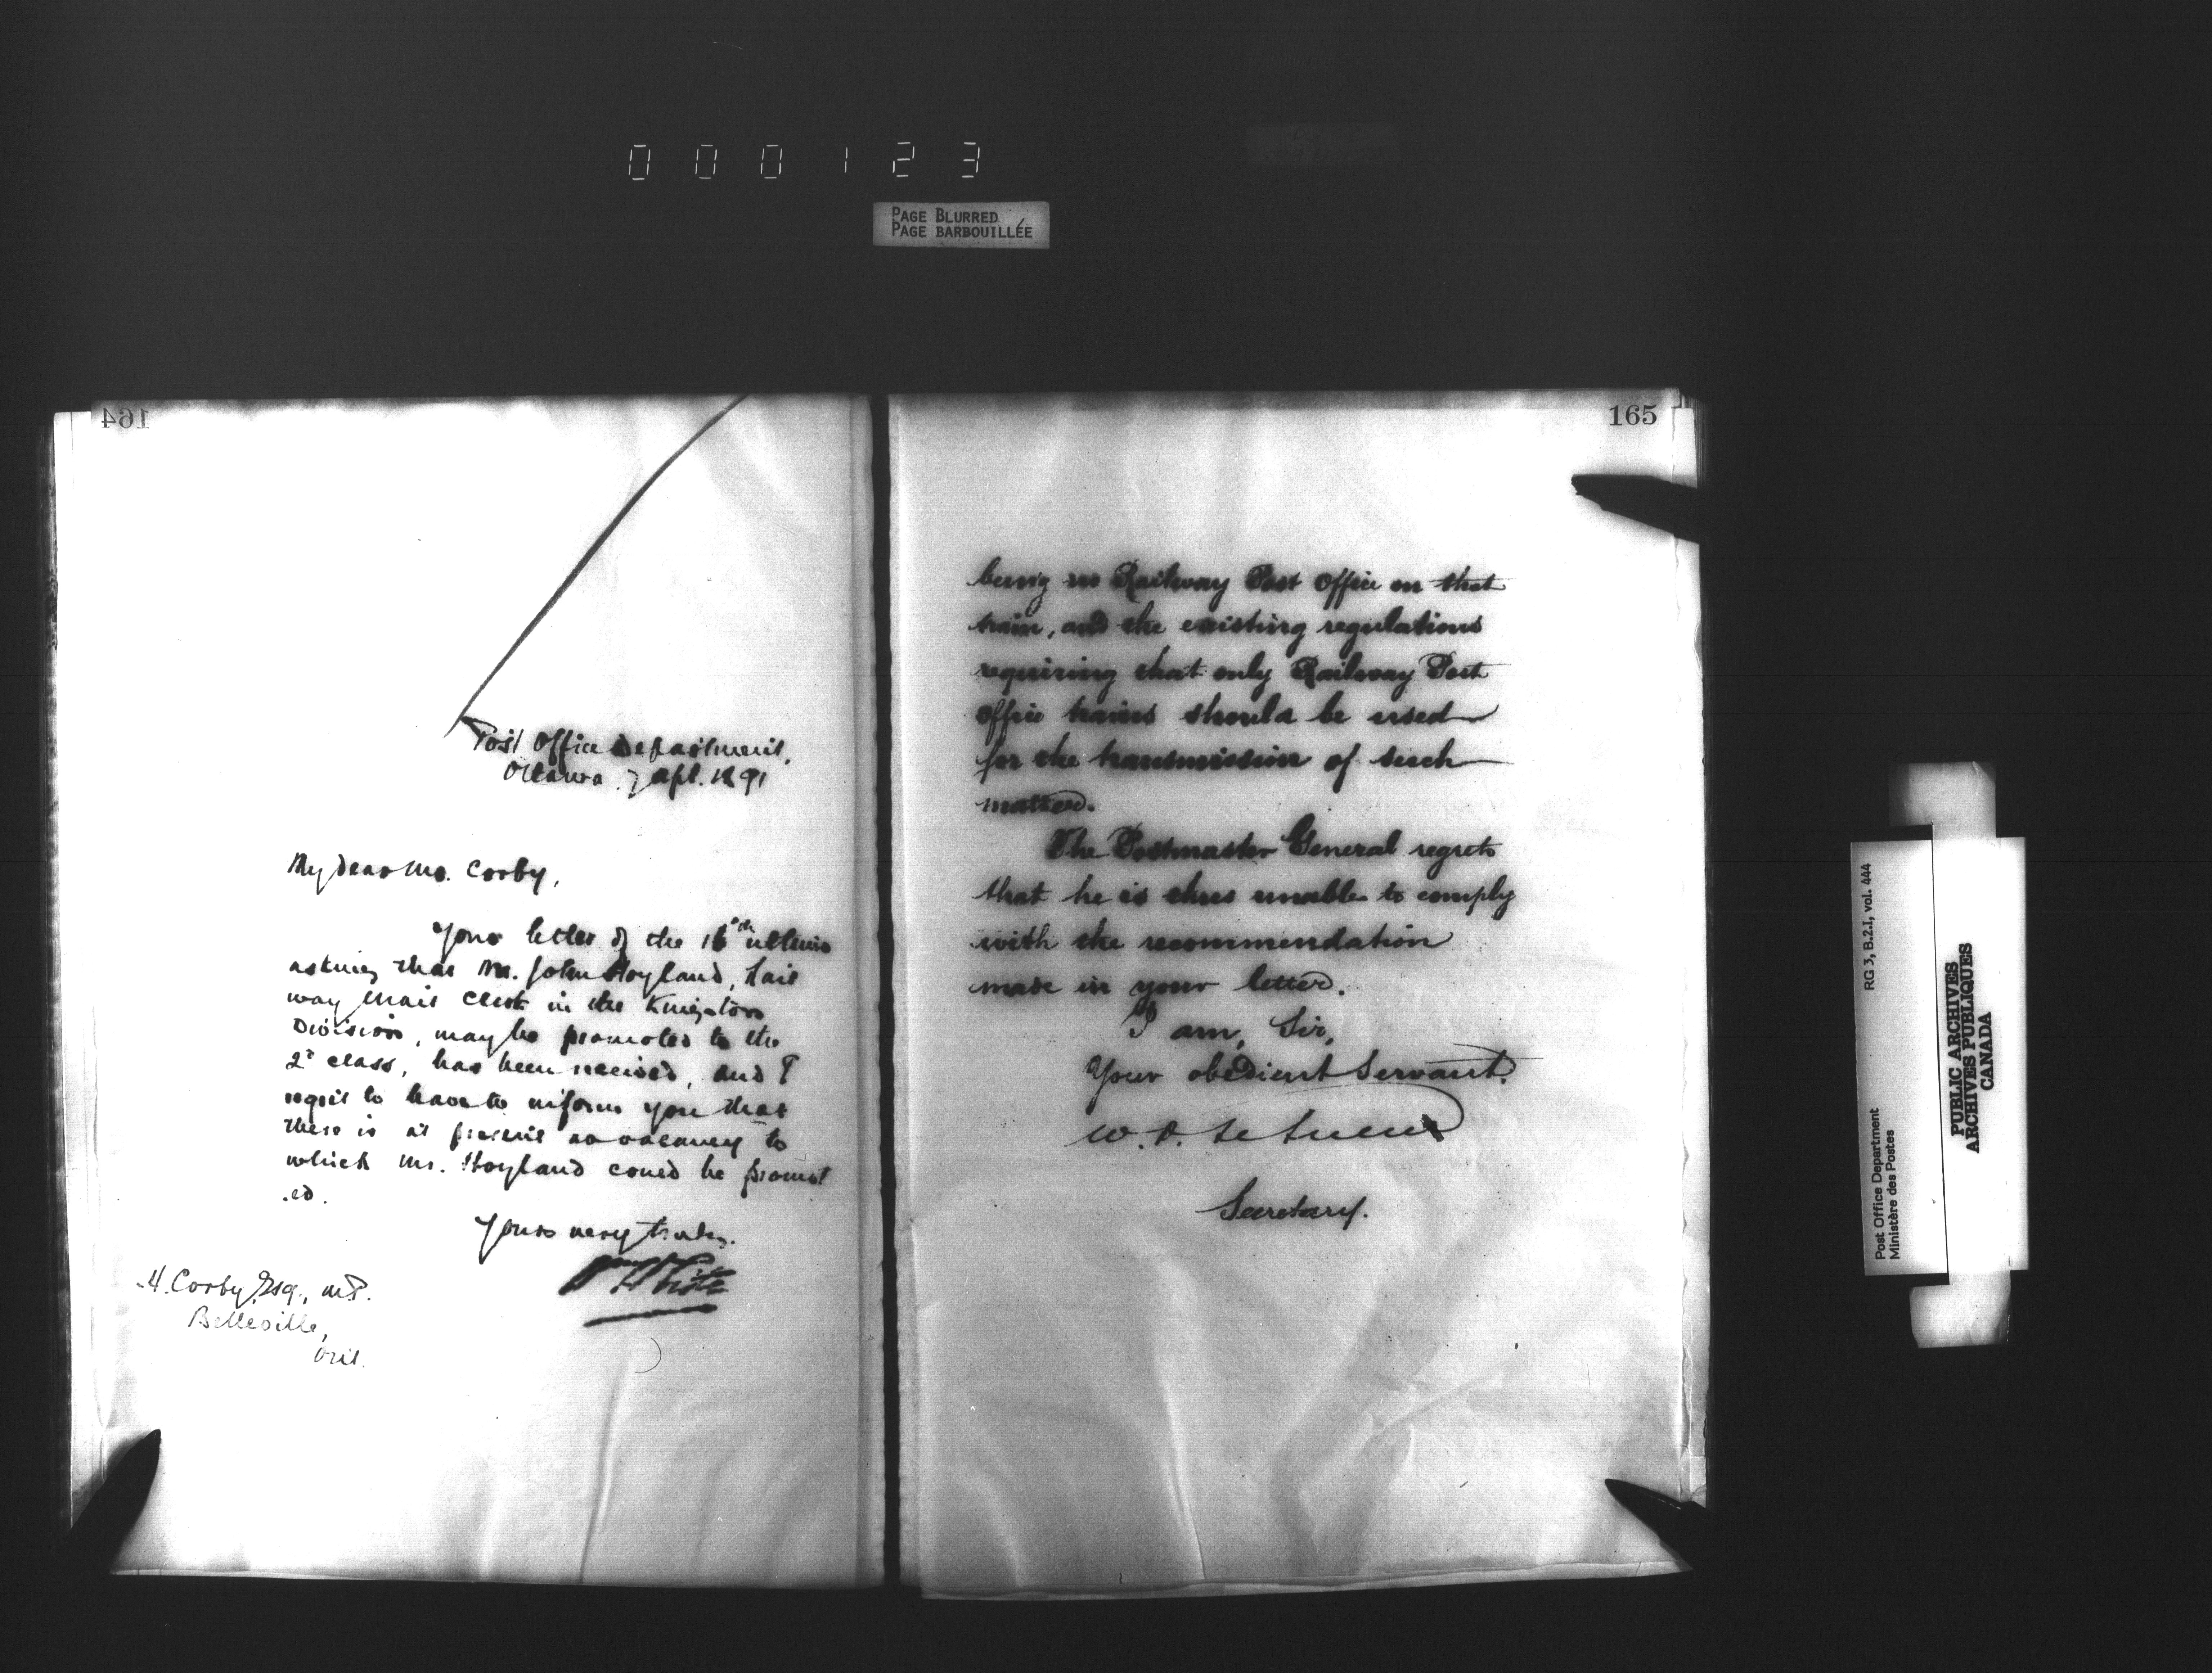 000123
PAGE BLURRED
PAGE BARBOUILLÉE
164
Post Office Department,
Ottawa. 7 Apl. 1891
My dear Mr. Corby,
Your letter of the 16th ultimo
asking that Mr. John Hoyland, Rail
way Mail Clerk in the Kingston
Division, may be promoted to the
2d class, has been received, and I
regret to have to inform you that
there is at present no vacancy to
which Mr. Hoyland could be promot
ed.
Yours very truly.
H. Corby, Esq., M.P.
Belleville,
Ont.
165
being no Railway Post Office on that
train, and the existing regulations
requiring that only Railway Post
Office trains should be used
for the transmission of such
matter.
The Postmaster General regrets
that he is thus unable to comply
with the recommendation
made in your letter.
I am, Sir,
Your obedient Servant.
W. D. LeSueur
Secretary.
RG 3, B.2.I, vol. 444
Post Office Department
Ministère des Postes
PUBLIC ARCHIVES
ARCHIVES PUBLIQUES
CANADA